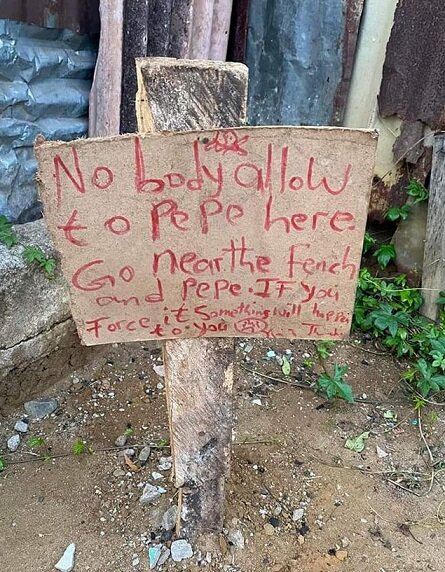 No body allow
to PePe here.
Go near the fench
and PePe. IF you
Force it Something will happen
to you